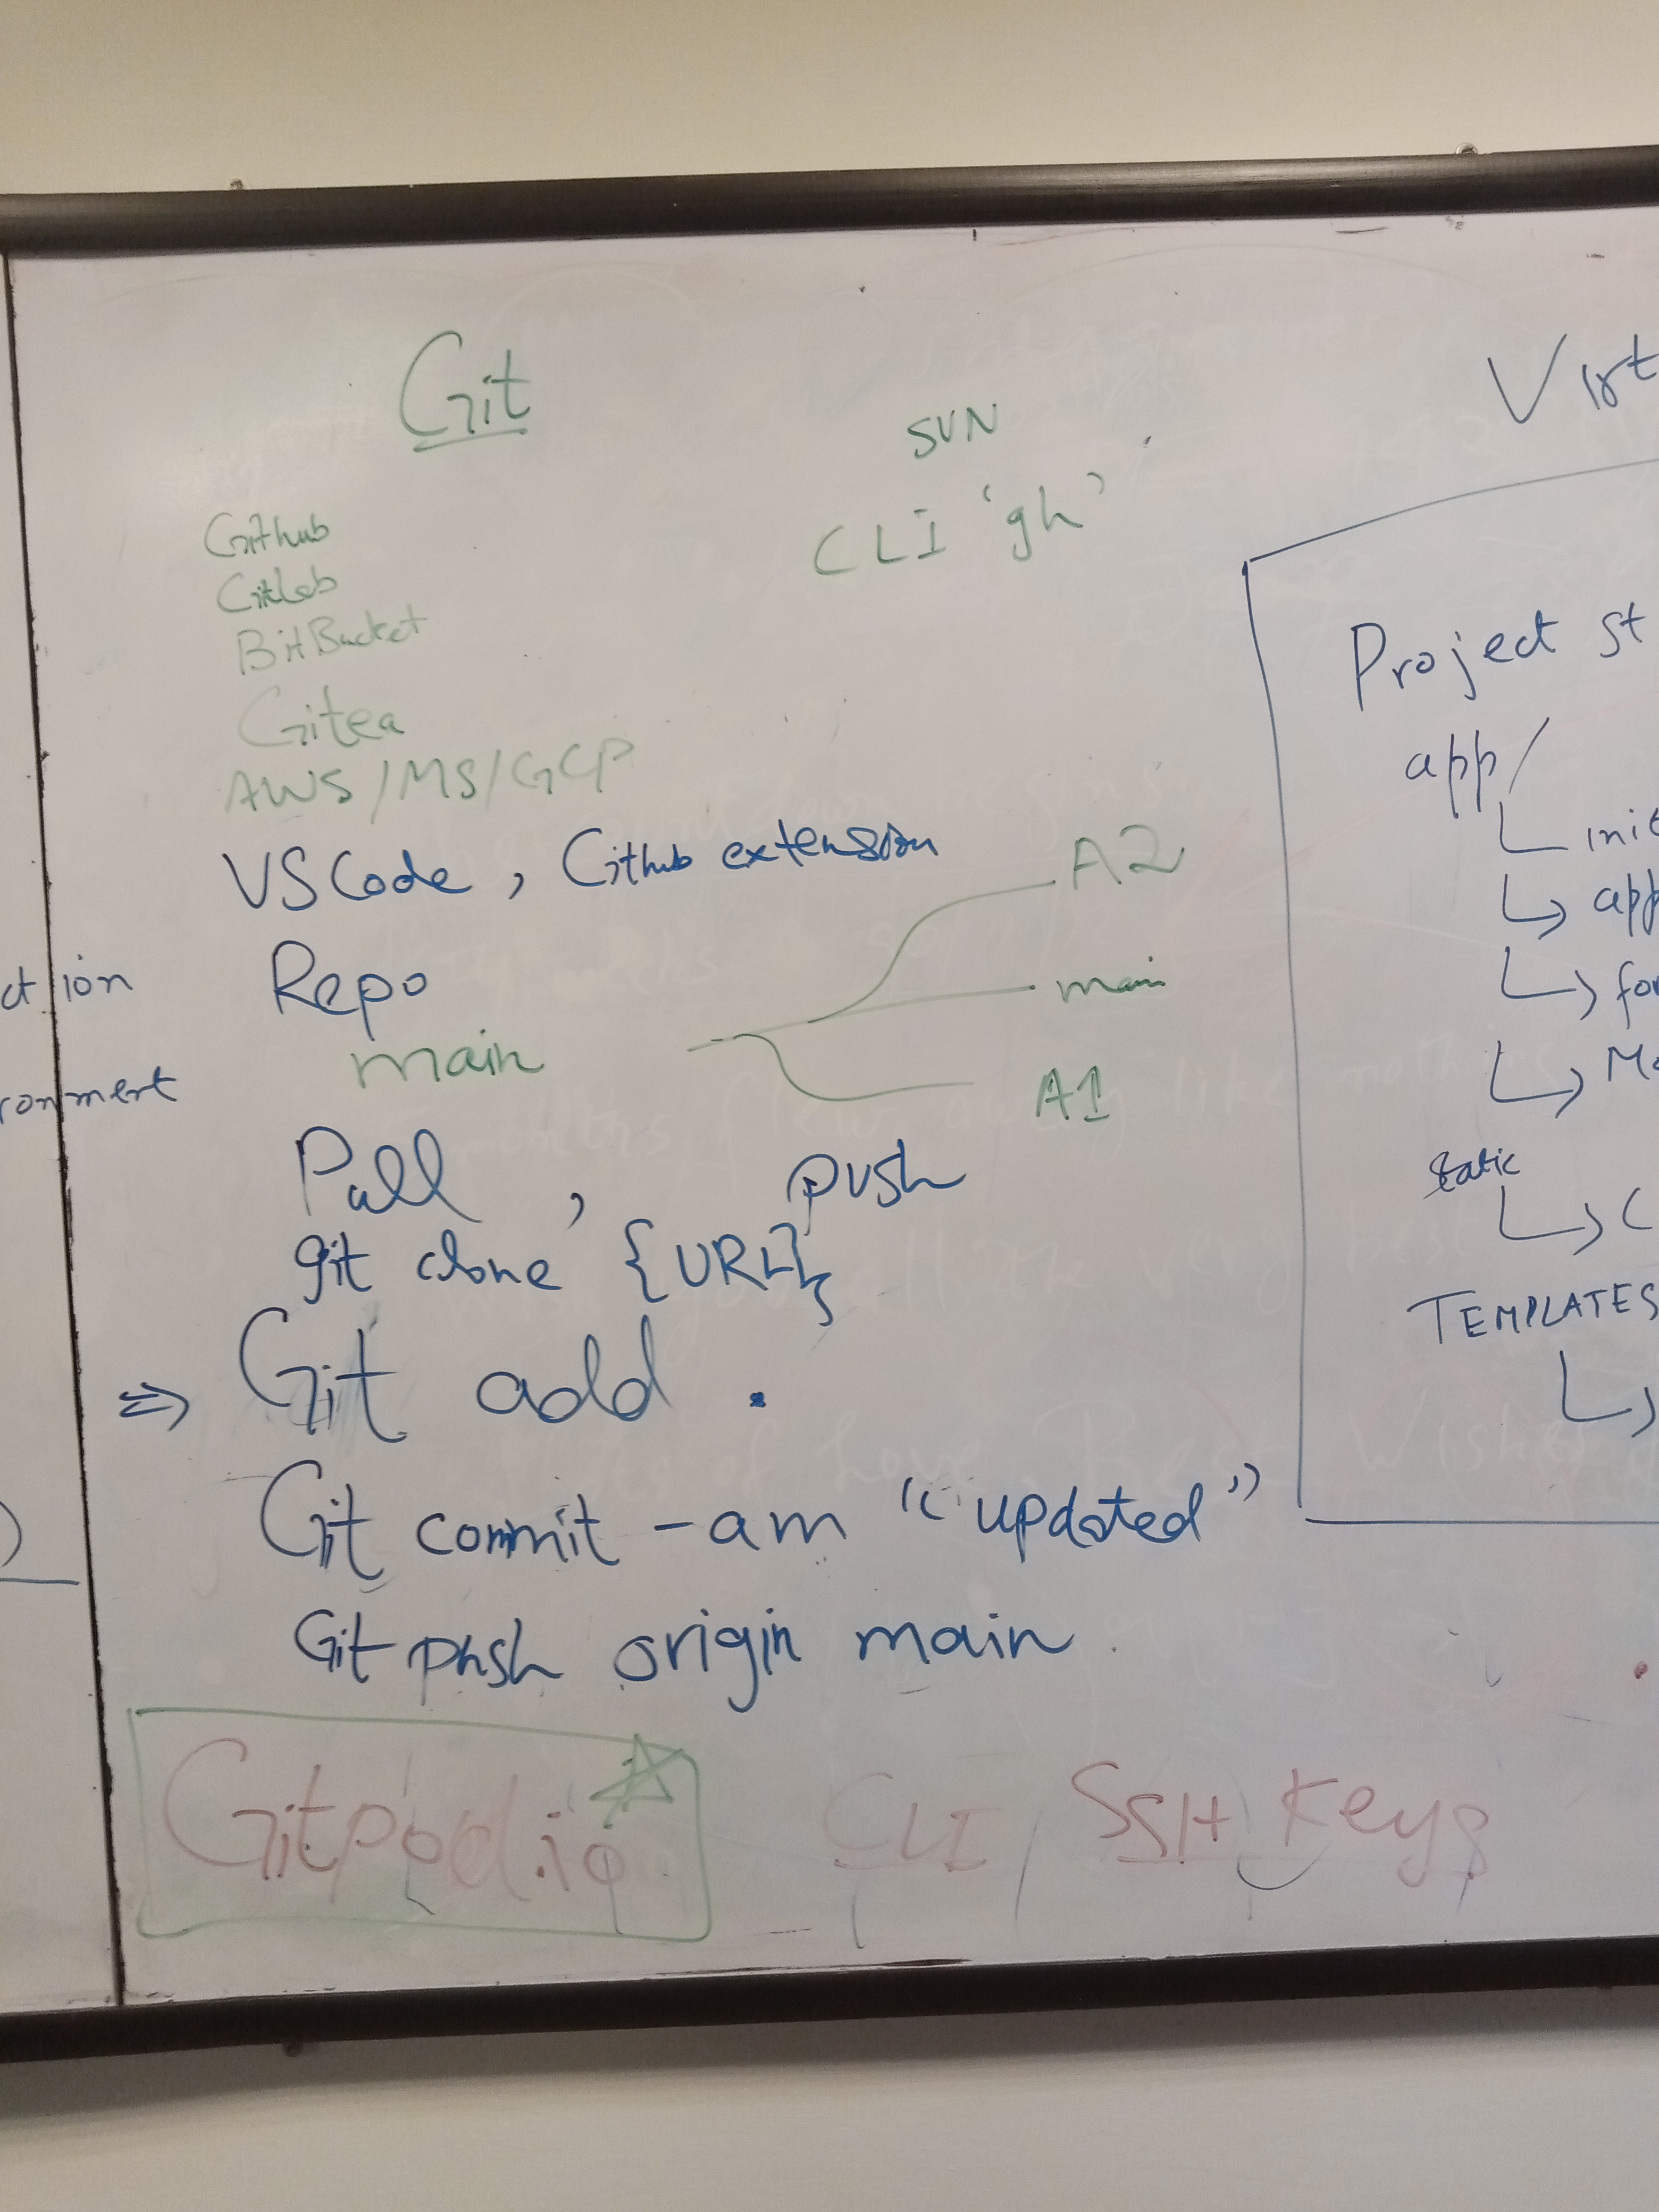 Git
SVN
CLI 'gh'
Github
GitLab
BitBucket
Gitea
AWS/MS/GCP
VSCode, Github extension
A2
Repo
main
main
A1
Pull , push
git clone {URL}
⇒ Git add .
Git commit -am "updated"
Git push origin main
Gitpod.io
CLI / SSH Keys
ction
ronment
Virt
Project st
app/
init
app
for
Mo
static
C
TEMPLATES